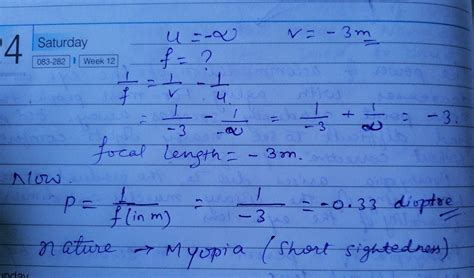 24
Saturday
083-282 Week 12
u = -∞ v = -3m
f = ?
1/f = 1/v - 1/4.
= 1/-3 - 1/-∞ = 1/-3 + 1/∞ = -3.
focal length = -3m.
Now.
P = 1/f(in m) = 1/-3 = -0.33 dioptre
nature → Myopia (short sightedness)